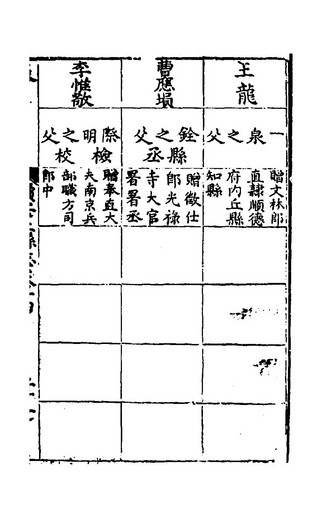 王龍
一泉之父
贈文林郎
直隷順德
府内丘縣
知縣
曹應塤
銓縣丞之父
贈徵仕
郎光祿
寺大官
署署丞
李惟敬
際明檢校之父
贈奉直大
夫南京兵
部職方司
郎中